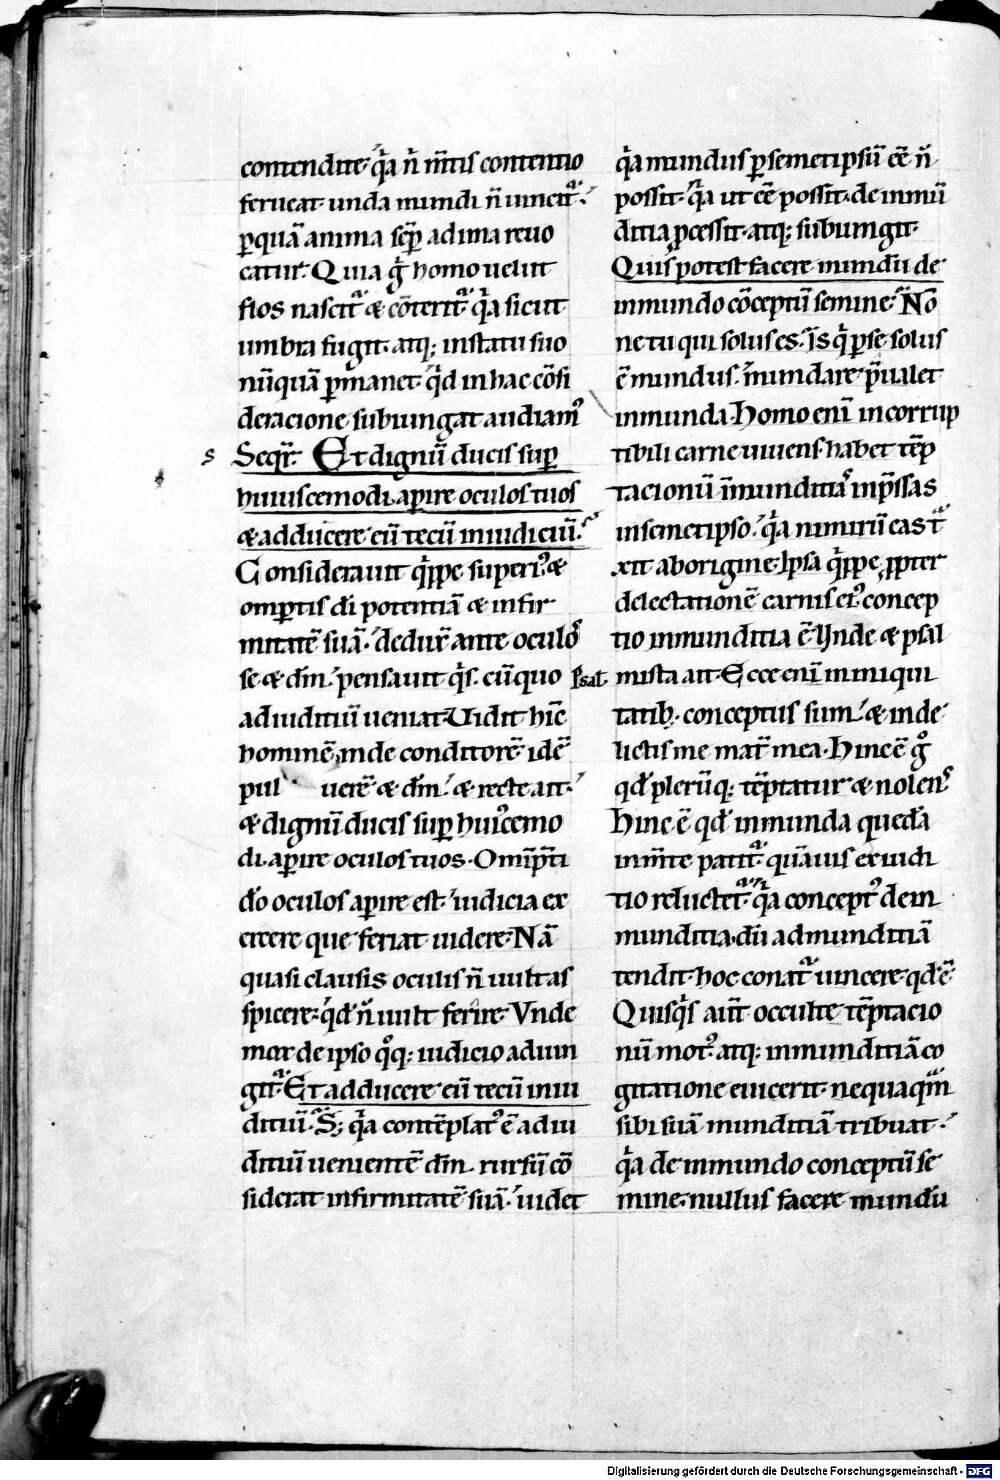 contendite· q̇a ñ m̅tis contentio
ferueat· unda mundi ñ uincit᷑·
p̱quā anima sep̱ ad ima reuo
catur· Quia g̊ homo uelut
flos nascit᷑ & cōterit᷑· q̇a sicut
umbra fugit· atq; instatu suo
nūquā p̱manet· q̇d in hac cōsi
deracione subiungat audiam᷒
s Seqr̄· Et dignū ducis sup̱
huiuscemodi· ap̱ire oculos tuos
& adducere eū tecū iniudiciū·
Considerauit q̇ppe sup̱eri᷒ &
omp̄tis di potentiā & infir
mitatē suā· deduxͬ ante oculoˢ
se & dm̅· pensauit q̇s· cū quo
ad iuditiū ueniat· Uidit hīc
hominē inde conditorē idē
pul uerē & dm̅· & recte ait·
& dignū ducis sup̱ hui᷒cemo
di· ap̱ire oculos tuos· Omīp̄ti
do oculos ap̱ire est· iudicia ex
ercere que feriat uidere· Nā
quasi clausis oculis ñ uult as
spicere· q̇d ñ uult ferire· Vnde
mox de ipso q̊q; iudicio adiun
git᷑· Et adducere eū tecū iniu
ditiū· S; q̇a contēplat᷒ ē adiu
ditiū uenientē dm̅· rursū cō
siderat infirmitatē suā· uidet
q̇a mundus p̱ semetipsū eē ñ
possit· q̇a ut eē possit· de inmū
ditia p̱cessit· atq; subiungit·
Quis potest facere mundū de
inmundo cōceptū semine· Nō
ne tu qui solus es· Is q̇ p̱ se solus
ē mundus· mundare p̄ualet
inmunda· Homo enī incorrup
tibili carne uiuens· habet tēp
tacionū īmunditiaˢ īp̄ssas
insemetipso· q̇a nimirū eas t̄
xit aborigine· Ipsa q̇ppe p̱pter
delectationē carnis ei᷒ concep
tio inmunditia ē· Unde & psal
psal· mista ait· Ecce enī ininiqui
tatib; conceptus sum· & inde
lictis me mat̄ mea· Hinc ē g̊
qd plerūq; tēptatur & nolenˢ
Hinc ē qd inmunda quedā
inm̄te patit᷑· quāuis ex iudi
tio reluctet᷑· q̇a concept᷒ de in
munditia· dū ad munditiā
tendit· hoc conat᷑ uincere· qd ē·
Quisq̇s aūt occulte tēptacio
nū mot᷒ atq; inmunditiā co
gitatione euicerit· nequaqm̅
sibi suā munditiā tribuat·
q̇a de inmundo conceptū se
mine· nullus facere mundū
Digitalisierung gefördert durch die Deutsche Forschungsgemeinschaft - DFG